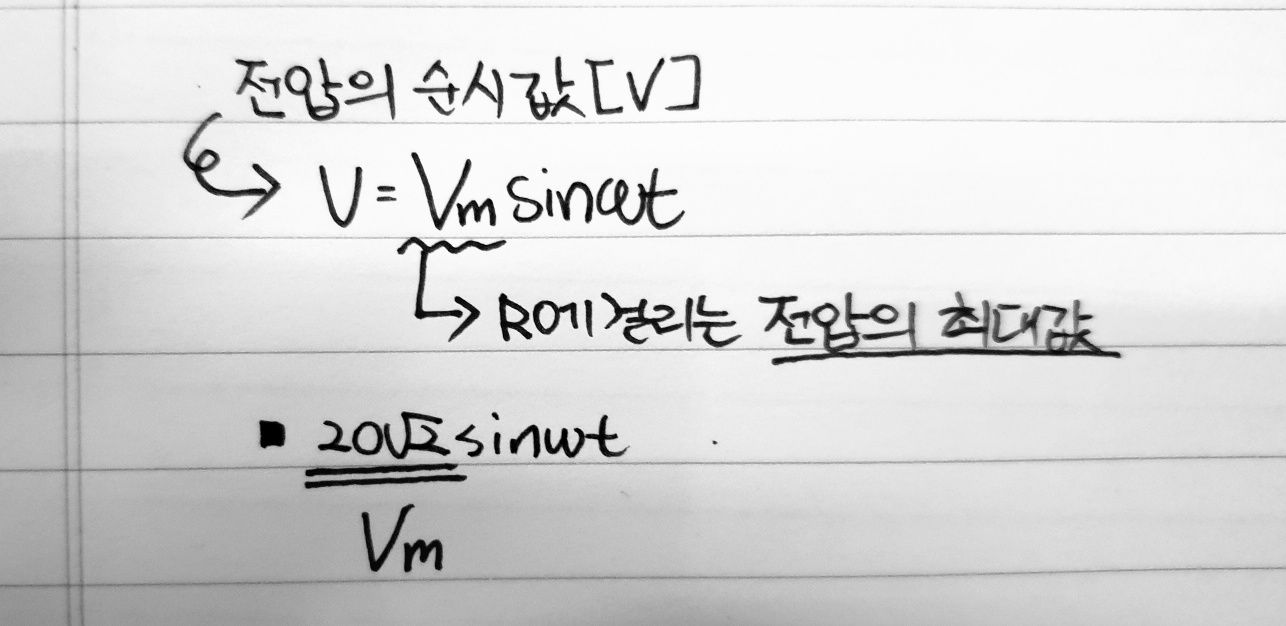 전압의 순시값[V]
V = Vm sinωt
R에 걸리는 전압의 최대값
▪ 20√2 sinωt
Vm